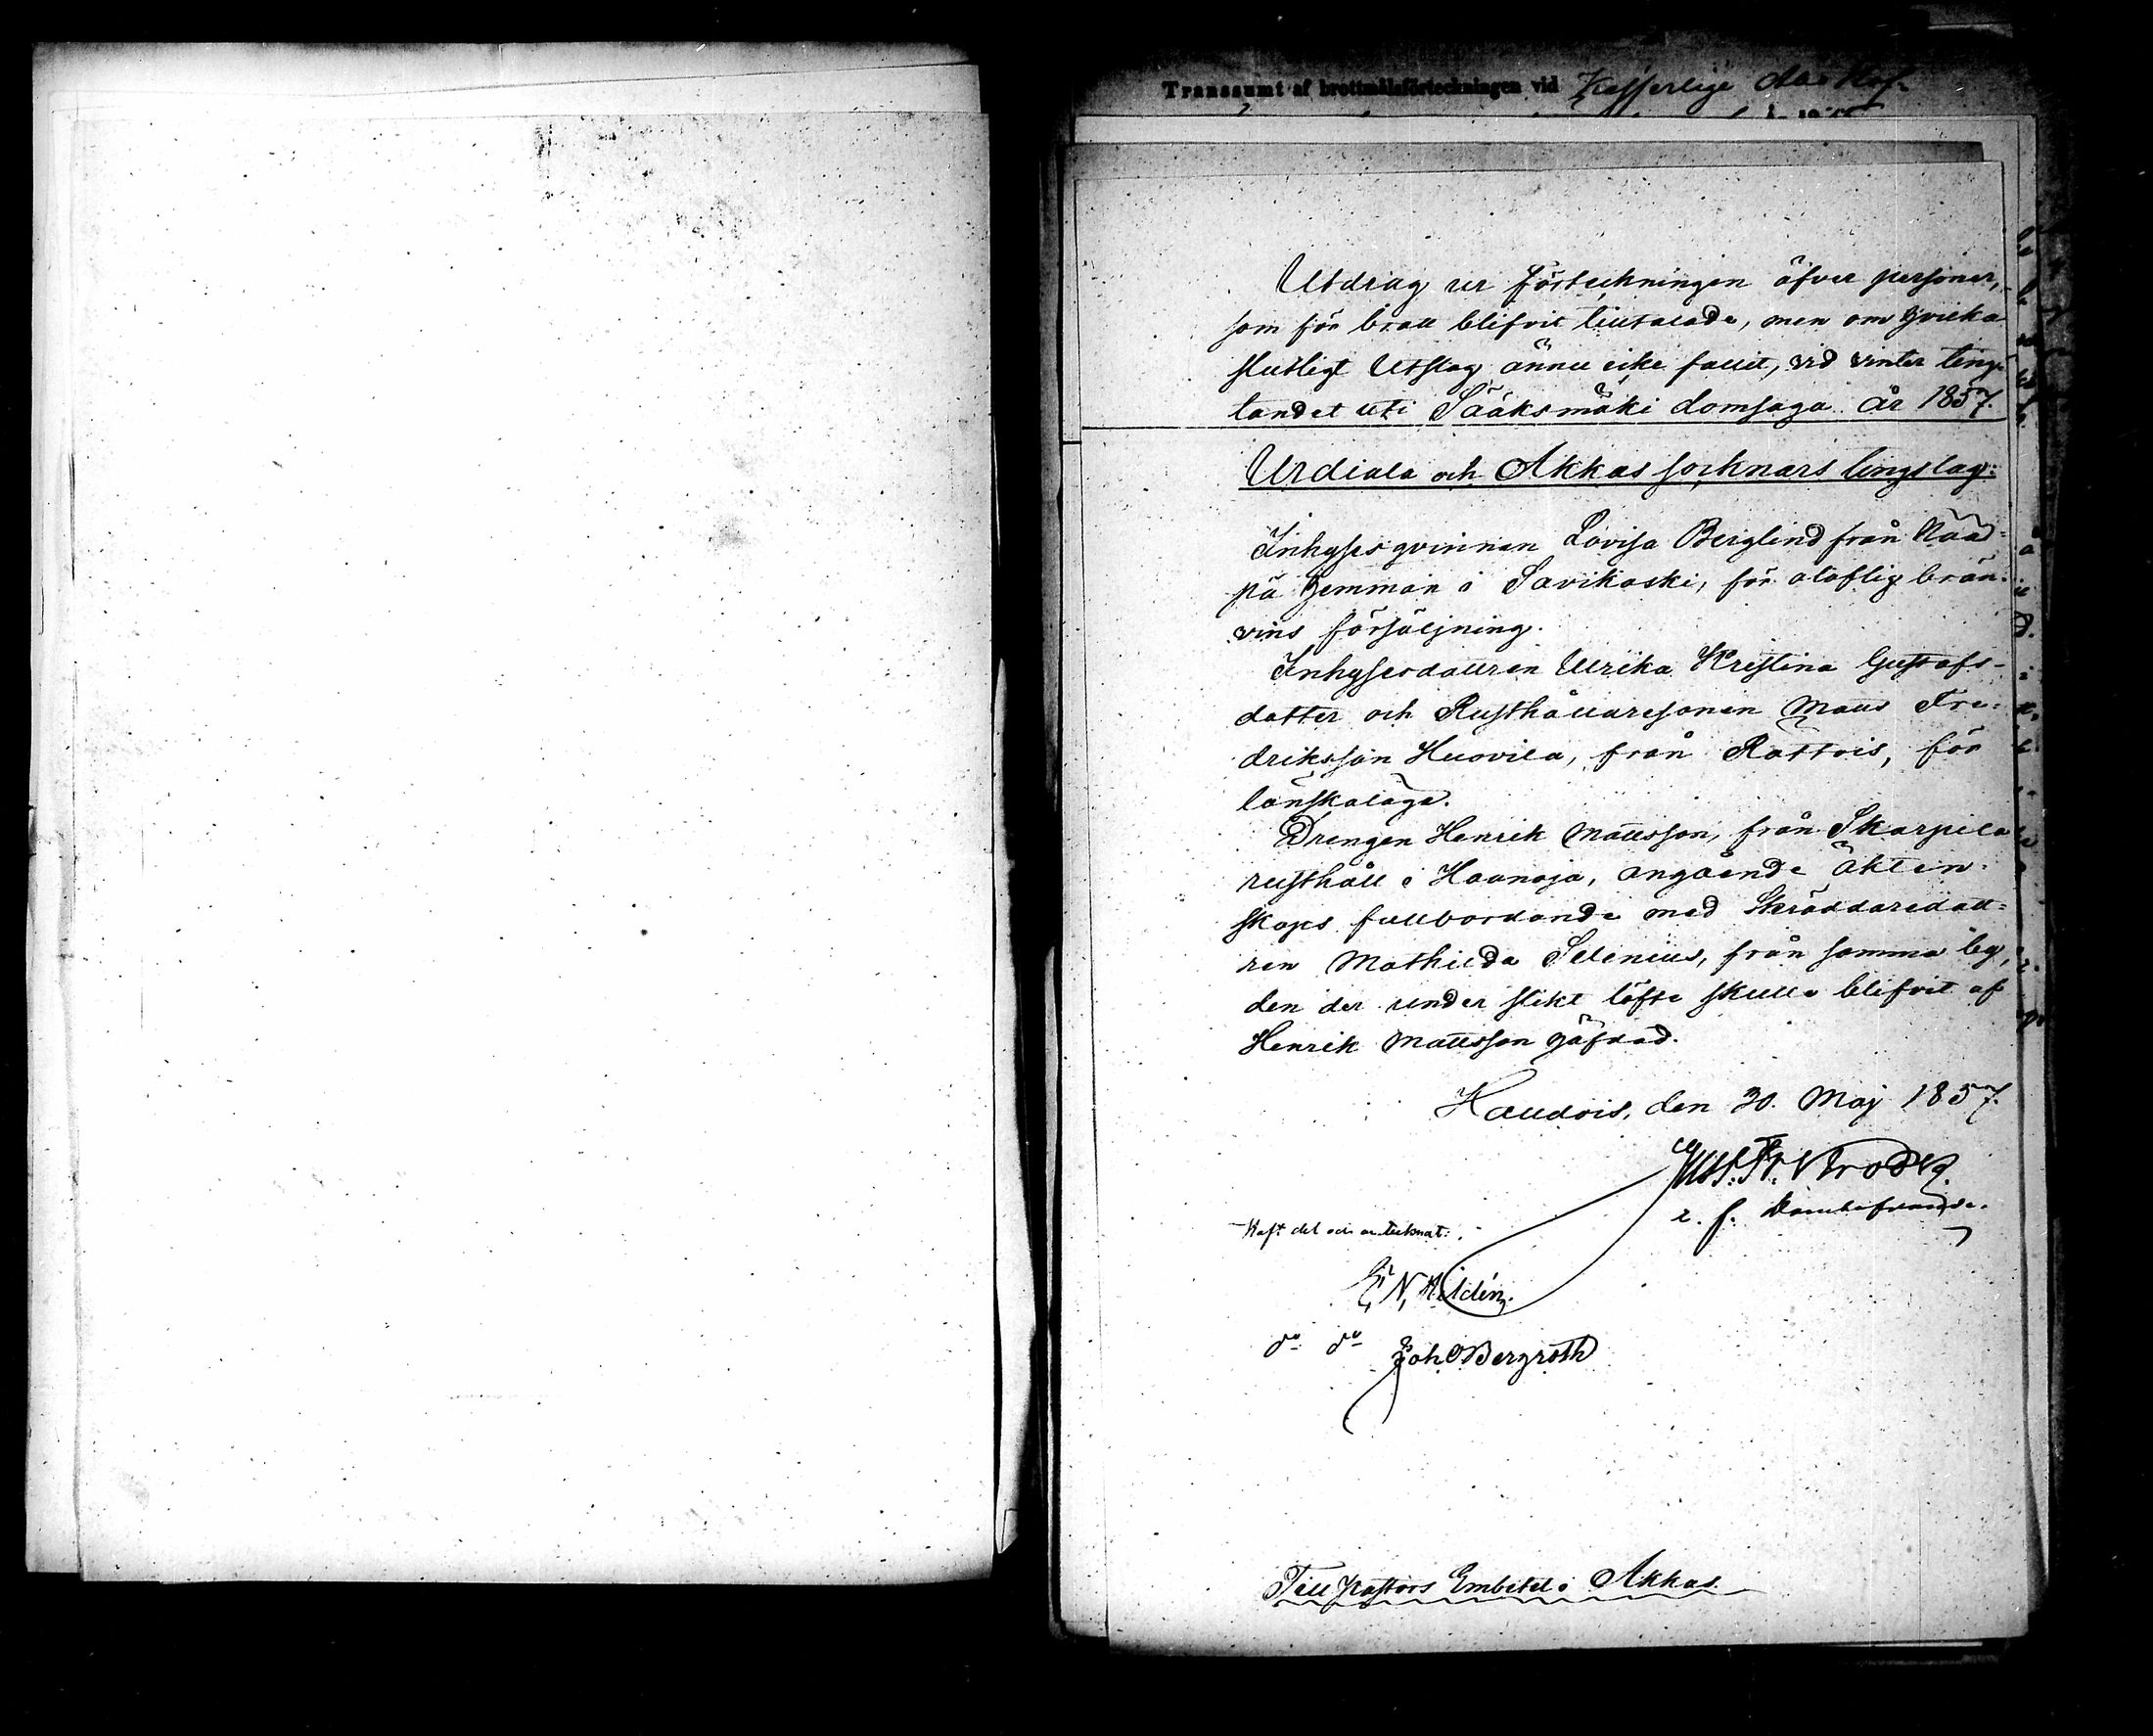 Transsumt af brottmålsförteckningen vid Kejserlige Åbo Hof-
Utdrag ur förteckningen öfver personer,
som för brott blifvit tilltalade, men om hvilka
slutligt Utslag ännu icke fallit, vid vinter ting-
tandet uti Sääksmäki domsaga år 1857.
Urdiala och Akkas socknars tingslag:
Inhyseqvinnan Lovisa Berglind från Naad-
pä hemman i Savikoski, för olaflig brän-
vins försäljning.
Inhysesdottren Ulrika Kristina Gustafs-
dotter och Rusthållaresonen Matts Fre-
driksson Huovila, från Rattois, för
lönskaläge.
Drengen Henrik Mattsson, från Skarpila
rusthåll i Haanoja, angående äkten-
skaps fullbordande med Skräddaredott-
ren Mathilda Selenius, från samma by,
den der under slikt löfte skulle blifvit af
Henrik Mattsson häfdad.
Haudois, den 30. Maj 1857.
Gust. Fr.
e. f. Domhafvande.
Haft del och antecknat:
E. N. Hildén.
do do Joh Bergroth
Till Pastors Embetet i Akkas.